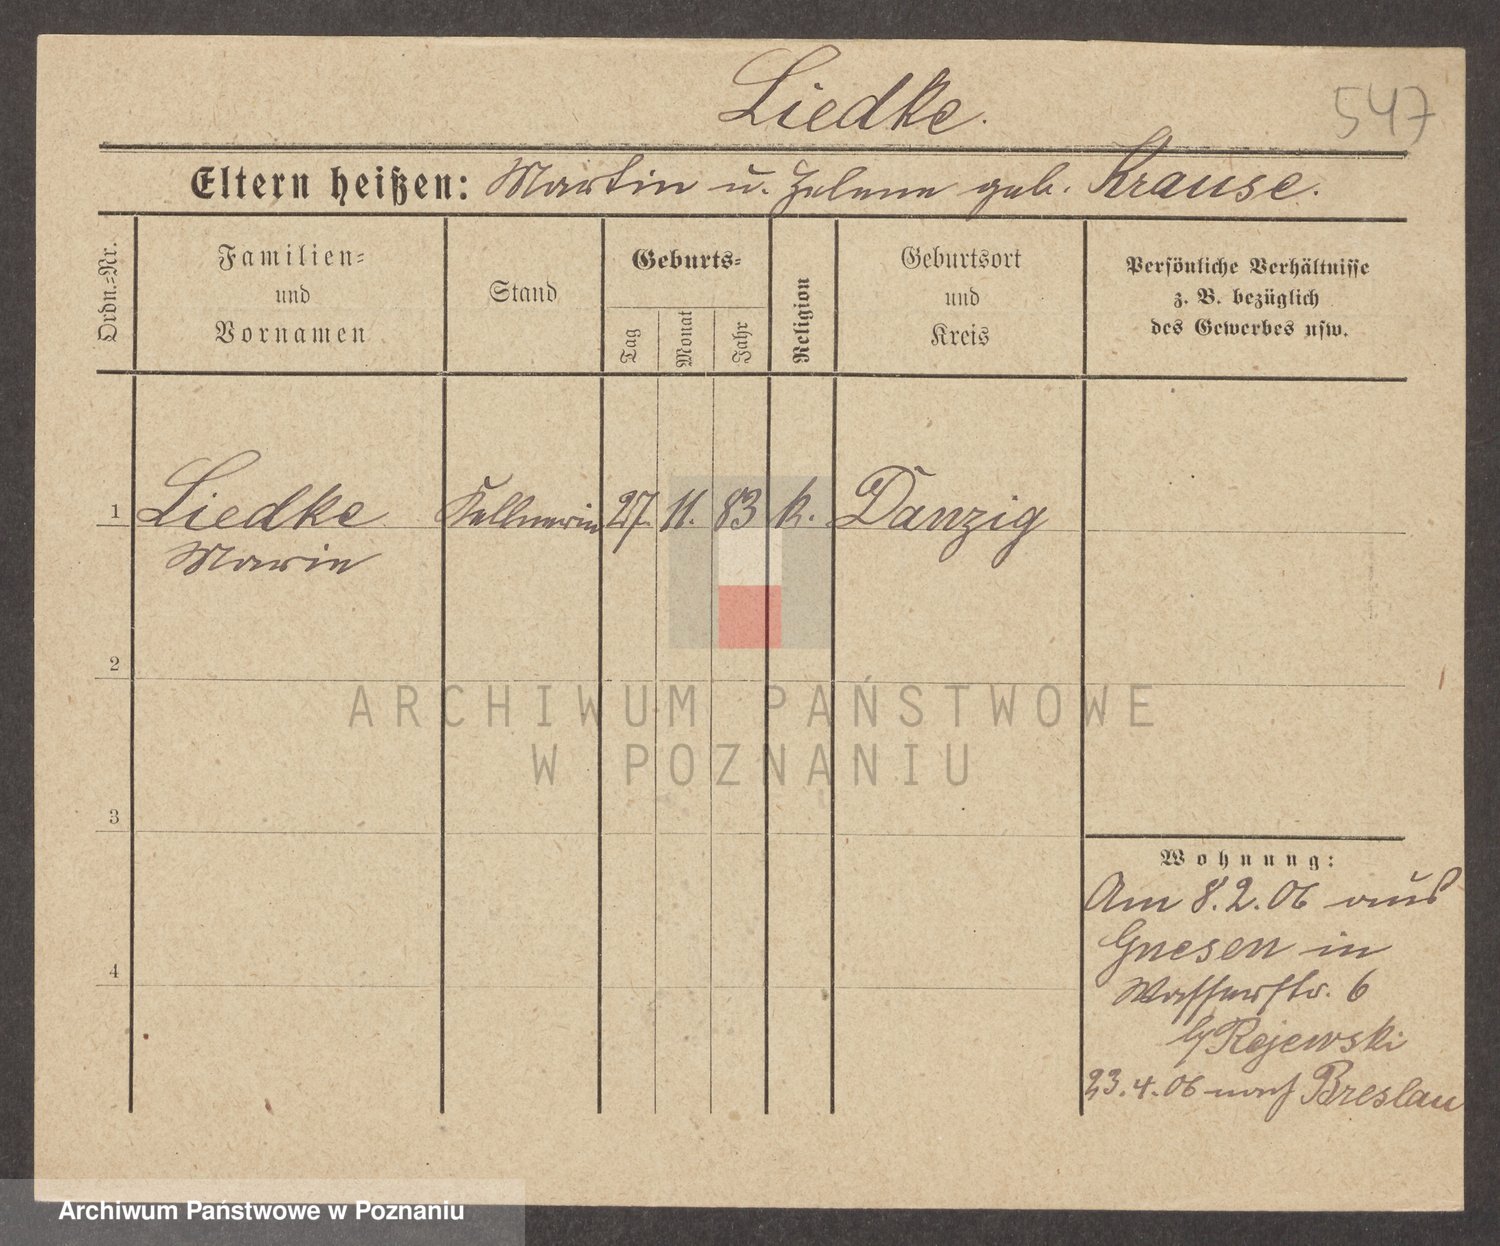 Liedke.
547
Eltern heißen: Martin u. Helene geb. Krause.
Ordn.=Nr.
Familien=
und
Vornamen
Stand
Geburts=
Tag
Monat
Jahr
Religion
Geburtsort
und
Kreis
Persönliche Verhältnisse
z. B. bezüglich
des Gewerbes usw.
1 Liedke Kellnerin 27. 11. 83 k. Danzig
Marie
2
ARCHIWUM PAŃSTWOWE
W POZNANIU
3
Wohnung:
Am 8.2.06 aus
Gnesen in
4
Wasserstr. 6
b/ Rejewski
23.4.06 nach Breslau
Archiwum Państwowe w Poznaniu